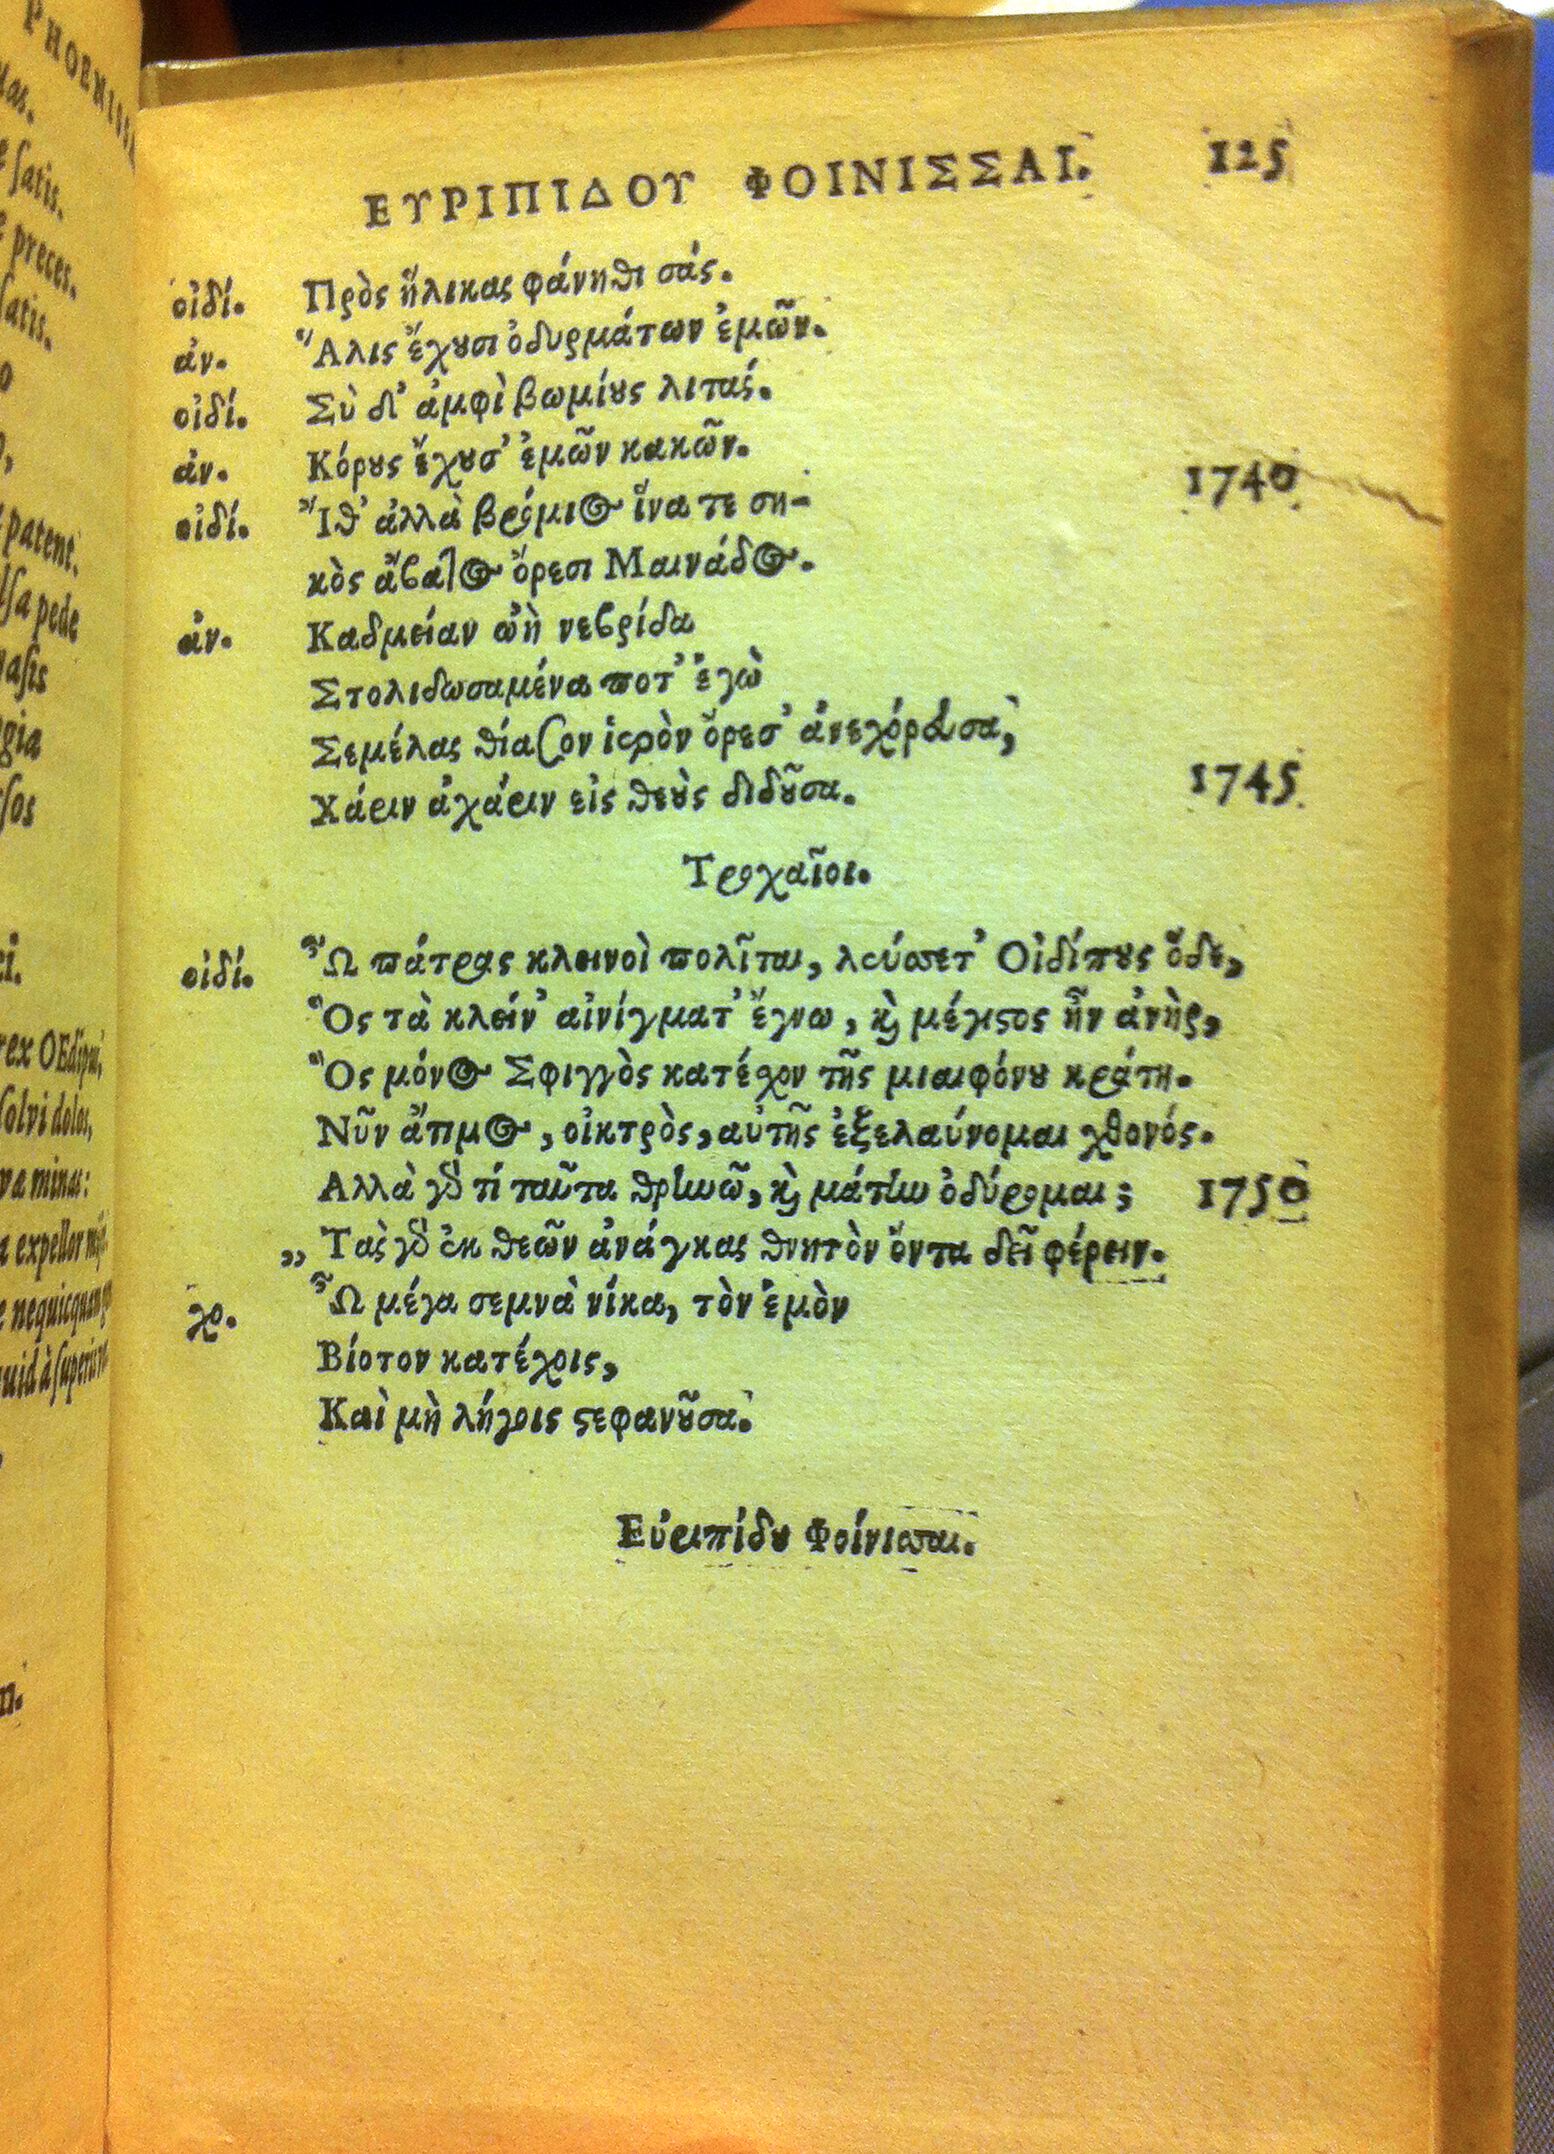 PHOENISSA
satis.
preces.
satis.
patent.
pede
rex OEdipus,
solvi dolos,
minas:
expellor
nequicquam
quid à superis
ΕΥΡΙΠΙΔΟΥ ΦΟΙΝΙΣΣΑΙ. 125
οἰδί. Πρὸς ἥλικας φάνηθι σάς.
ἀν. Ἅλις ἔχουσι ὀδυρμάτων ἐμῶν.
οἰδί. Σὺ δ' ἀμφὶ βωμίους λιτάς.
ἀν. Κόρους ἔχουσ' ἐμῶν κακῶν.
οἰδί. Ἴθ' ἀλλὰ βρόμιος ἵνα τε ση- 1740
κὸς ἄβατος ὄρεσι Μαινάδος.
ἀν. Καδμείαν ᾧ νεβρίδα
Στολιδωσαμένα ποτ' ἐγὼ
Σεμέλας θίασον ἱερὸν ὄρεσ' ἀνεχόρευσα,
Χάριν ἀχάριν εἰς θεοὺς διδοῦσα. 1745
Τροχαῖοι.
οἰδί. Ὦ πάτρας κλεινοὶ πολῖται, λεύσσετ' Οἰδίπους ὅδε,
Ὃς τὰ κλείν' αἰνίγματ' ἔγνω, καὶ μέγιστος ἦν ἀνὴρ,
Ὃς μόνος Σφιγγὸς κατέχον τῆς μιαιφόνου κράτη.
Νῦν ἄτιμος, οἰκτρὸς, αὐτῆς ἐξελαύνομαι χθονός.
Ἀλλὰ γὰρ τί ταῦτα θρηνῶ, καὶ μάτην ὀδύρομαι; 1750
„ Τὰς γὰρ ἐκ θεῶν ἀνάγκας θνητὸν ὄντα δεῖ φέρειν.
χο. Ὦ μέγα σεμνὰ νίκα, τὸν ἐμὸν
Βίοτον κατέχοις,
Καὶ μὴ λήγοις στεφανοῦσα.
Εὐριπίδου Φοίνισσαι.